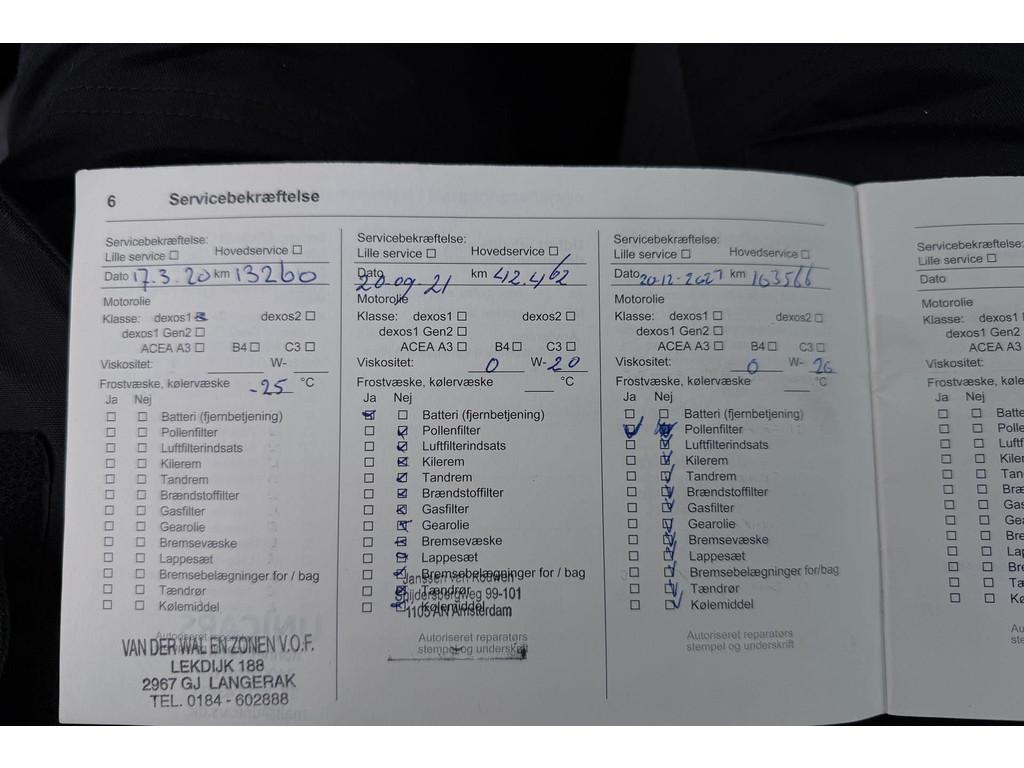 6 Servicebekræftelse
Servicebekræftelse:
Lille service ☐ Hovedservice ☐
Dato 17.3.20 km 13260
Motorolie
Klasse: dexos1 ☒ dexos2 ☐
dexos1 Gen2 ☐
ACEA A3 ☐ B4 ☐ C3 ☐
Viskositet: W-
Frostvæske, kølervæske -25 °C
Ja Nej
☐ ☐ Batteri (fjernbetjening)
☐ ☐ Pollenfilter
☐ ☐ Luftfilterindsats
☐ ☐ Kilerem
☐ ☐ Tandrem
☐ ☐ Brændstoffilter
☐ ☐ Gasfilter
☐ ☐ Gearolie
☐ ☐ Bremsevæske
☐ ☐ Lappesæt
☐ ☐ Bremsebelægninger for / bag
☐ ☐ Tændrør
☐ ☐ Kølemiddel
Autoriseret
VAN DER WAL EN ZONEN V.O.F.
LEKDIJK 188
2967 GJ LANGERAK
TEL. 0184 - 602888
Servicebekræftelse:
Lille service ☐ Hovedservice ☐
Dato 20-09-21 km 42.462
Motorolie
Klasse: dexos1 ☐ dexos2 ☐
dexos1 Gen2 ☐
ACEA A3 ☐ B4 ☐ C3 ☐
Viskositet: 0 W-20
Frostvæske, kølervæske °C
Ja Nej
☑ ☐ Batteri (fjernbetjening)
☐ ☑ Pollenfilter
☐ ☑ Luftfilterindsats
☐ ☑ Kilerem
☐ ☑ Tandrem
☐ ☑ Brændstoffilter
☐ ☑ Gasfilter
☐ ☑ Gearolie
☐ ☑ Bremsevæske
☐ ☑ Lappesæt
☐ ☑ Bremsebelægninger for / bag
Janssen van Kouwen
☐ ☑ Tændrør
Snijdersbergweg 99-101
☐ ☑ Kølemiddel
1105 AN Amsterdam
Autoriseret reparatørs
stempel og underskrift
Servicebekræftelse:
Lille service ☐ Hovedservice ☐
Dato 20-12- km 163566
Motorolie
Klasse: dexos1 ☐ dexos2 ☐
dexos1 Gen2 ☐
ACEA A3 ☐ B4 ☐ C3 ☐
Viskositet: 0 W- 20
Frostvæske, kølervæske °C
Ja Nej
☐ ☐ Batteri (fjernbetjening)
☑ ☑ Pollenfilter
☐ ☑ Luftfilterindsats
☐ ☑ Kilerem
☐ ☑ Tandrem
☐ ☑ Brændstoffilter
☐ ☑ Gasfilter
☐ ☑ Gearolie
☐ ☑ Bremsevæske
☐ ☑ Lappesæt
☐ ☑ Bremsebelægninger for/bag
☐ ☑ Tændrør
☐ ☑ Kølemiddel
Autoriseret reparatørs
stempel og underskrift
Servicebekræftelse:
Lille service ☐
Dato
Motorolie
Klasse: dexos1
dexos1 G
ACEA A3
Viskositet:
Frostvæske, køler
Ja Nej
☐ ☐ Batte
☐ ☐ Polle
☐ ☐ Luftf
☐ ☐ Kiler
☐ ☐ Tan
☐ ☐ Bræ
☐ ☐ Gas
☐ ☐ Gea
☐ ☐ Bre
☐ ☐ Lap
☐ ☐ Bre
☐ ☐ Tæ
☐ ☐ Kø
Au
ste